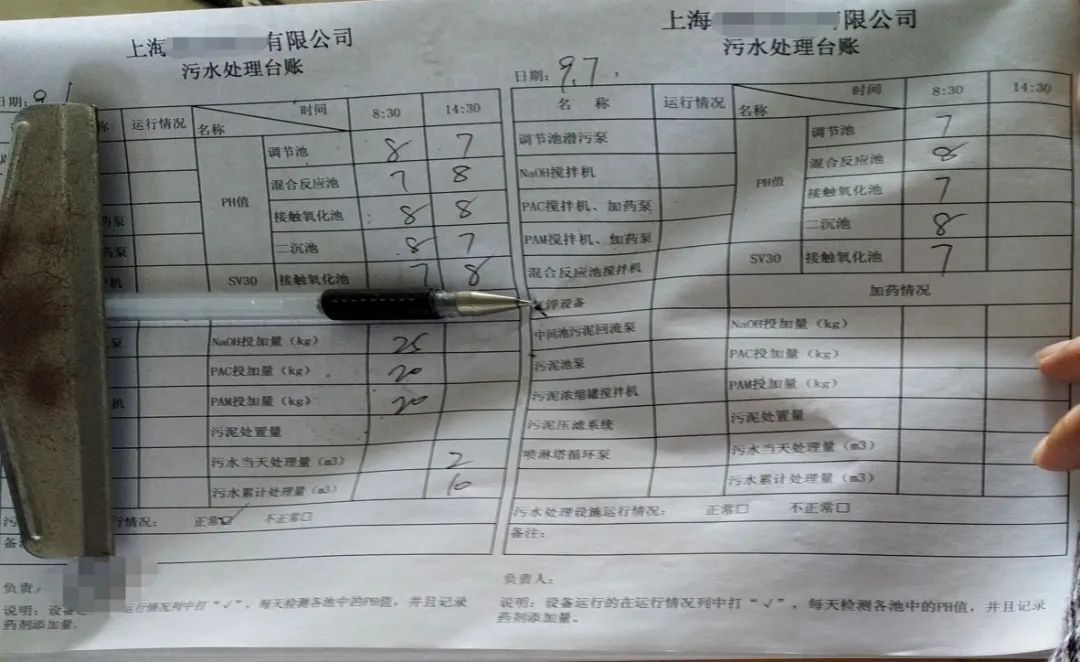 上海 有限公司
污水处理台账
日期:9
称 运行情况 名称 时间 8:30 14:30
PH值 调节池 8 7
混合反应池 7 8
接触氧化池 8 8
药泵
二沉池 8 7
药泵
SV30 接触氧化池 7 8
机
泵 NaOH投加量(kg) 25
PAC投加量(kg) 20
机 PAM投加量(kg) 20
污泥处置量
污水当天处理量(m3) 2
污水累计处理量(m3) 10
行情况: 正常☑ 不正常□
备
负责
说明:设备 运行情况列中打“√”,每天检测各池中的PH值,并且记录
药剂添加量.
上海 有限公司
污水处理台账
日期:9.7
名 称 运行情况 名称 时间 8:30 14:30
调节池潜污泵 PH值 调节池 7
NaOH搅拌机 混合反应池 8
PAC搅拌机、加药泵 接触氧化池 7
PAM搅拌机、加药泵 二沉池 8
混合反应池搅拌机 SV30 接触氧化池 7
浮设备 加药情况
中间池污泥回流泵 NaOH投加量(kg)
污泥池泵 PAC投加量(kg)
污泥浓缩罐搅拌机 PAM投加量(kg)
污泥压滤系统 污泥处置量
喷淋塔循环泵 污水当天处理量(m3)
污水累计处理量(m3)
污水处理设施运行情况: 正常□ 不正常□
备注:
负责人:
说明:设备运行的在运行情况列中打“√”,每天检测各池中的PH值,并且记录
药剂添加量.